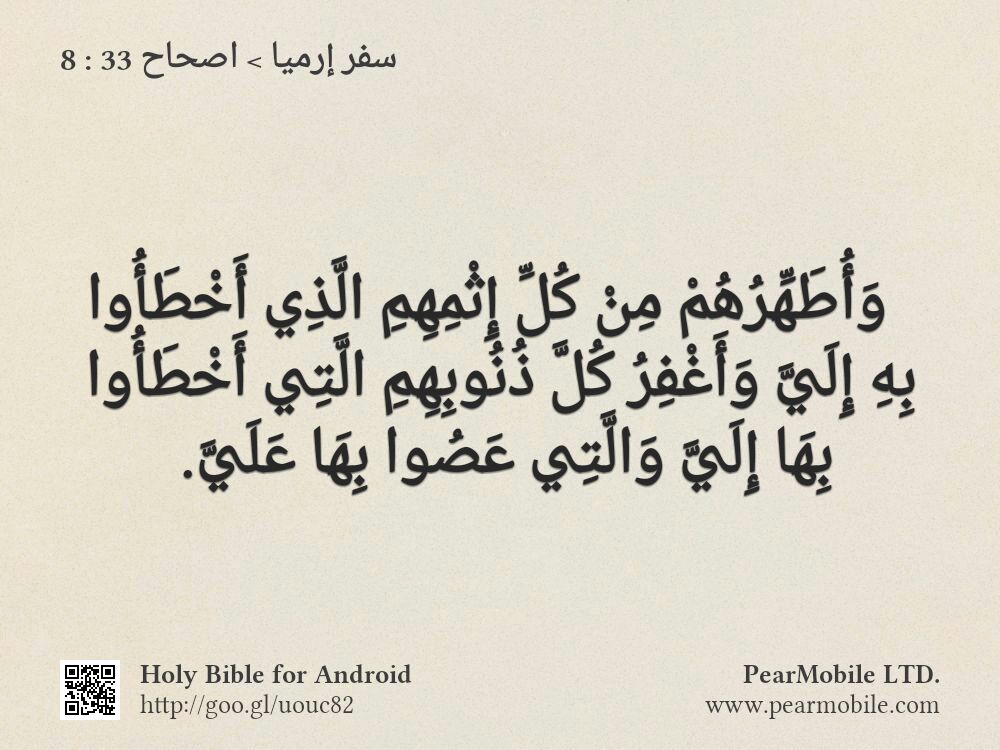 سفر إرميا > اصحاح 33 : 8
وَأُطَهِّرُهُمْ مِنْ كُلِّ إِثْمِهِمِ الَّذِي أَخْطَأُوا
بِهِ إِلَيَّ وَأَغْفِرُ كُلَّ ذُنُوبِهِمِ الَّتِي أَخْطَأُوا
بِهَا إِلَيَّ وَالَّتِي عَصُوا بِهَا عَلَيَّ.
Holy Bible for Android
http://goo.gl/uouc82
PearMobile LTD.
www.pearmobile.com